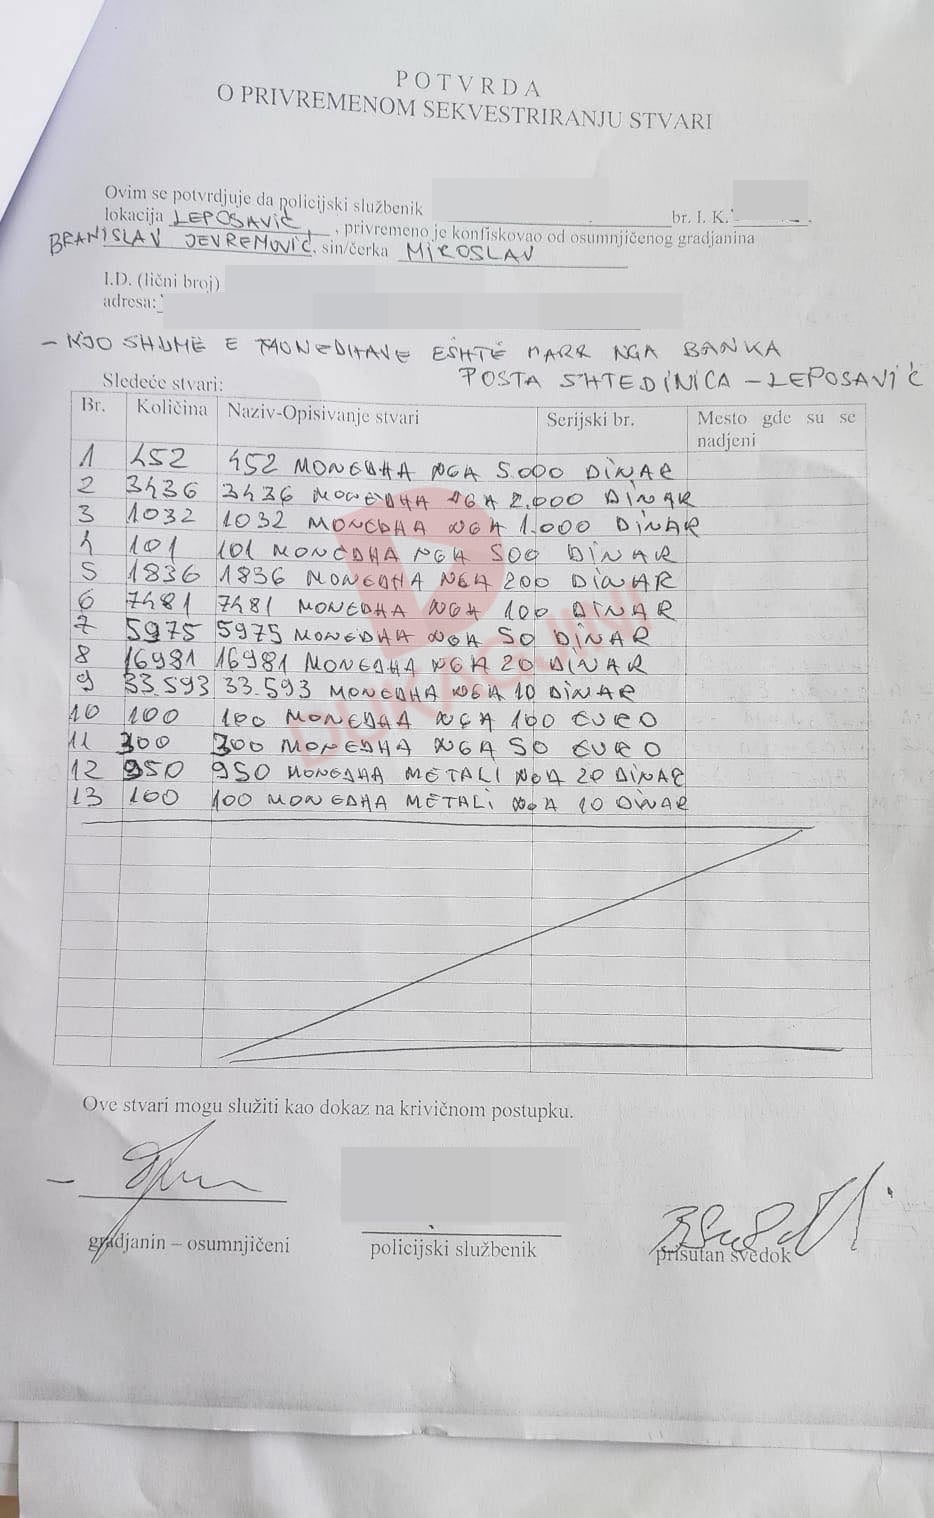 POTVRDA
O PRIVREMENOM SEKVESTRIRANJU STVARI
Ovim se potvrdjuje da policijski službenik br. I. K.
lokacija LEPOSAVIĆ, privremeno je konfiskovao od osumnjičenog gradjanina
BRANISLAV JEVREMOVIĆ, sin/čerka MIROSLAV
I.D. (lični broj)
adresa:
- KJO SHUMË E MONEDHAVE ESHTË MARR NGA BANKA
POSTA SHTEDINICA - LEPOSAVIĆ
Sledeće stvari:
Br. Količina Naziv-Opisivanje stvari Serijski br. Mesto gde su se nadjeni
1 452 452 MONEDHA NGA 5.000 DINAR
2 3436 3436 MONEDHA NGA 2.000 DINAR
3 1032 1032 MONEDHA NGA 1.000 DINAR
4 101 101 MONEDHA NGA 500 DINAR
5 1836 1836 MONEDHA NGA 200 DINAR
6 7481 7481 MONEDHA NGA 100 DINAR
7 5975 5975 MONEDHA NGA 50 DINAR
8 16981 16981 MONEDHA NGA 20 DINAR
9 33.593 33.593 MONEDHA NGA 10 DINAR
10 100 100 MONEDHA NGA 100 EURO
11 300 300 MONEDHA NGA 50 EURO
12 950 950 MONEDHA METALI NGA 20 DINAR
13 100 100 MONEDHA METALI NGA 10 DINAR
DUKAGJINI
Ove stvari mogu služiti kao dokaz na krivičnom postupku.
gradjanin – osumnjičeni policijski službenik prisutan svedok